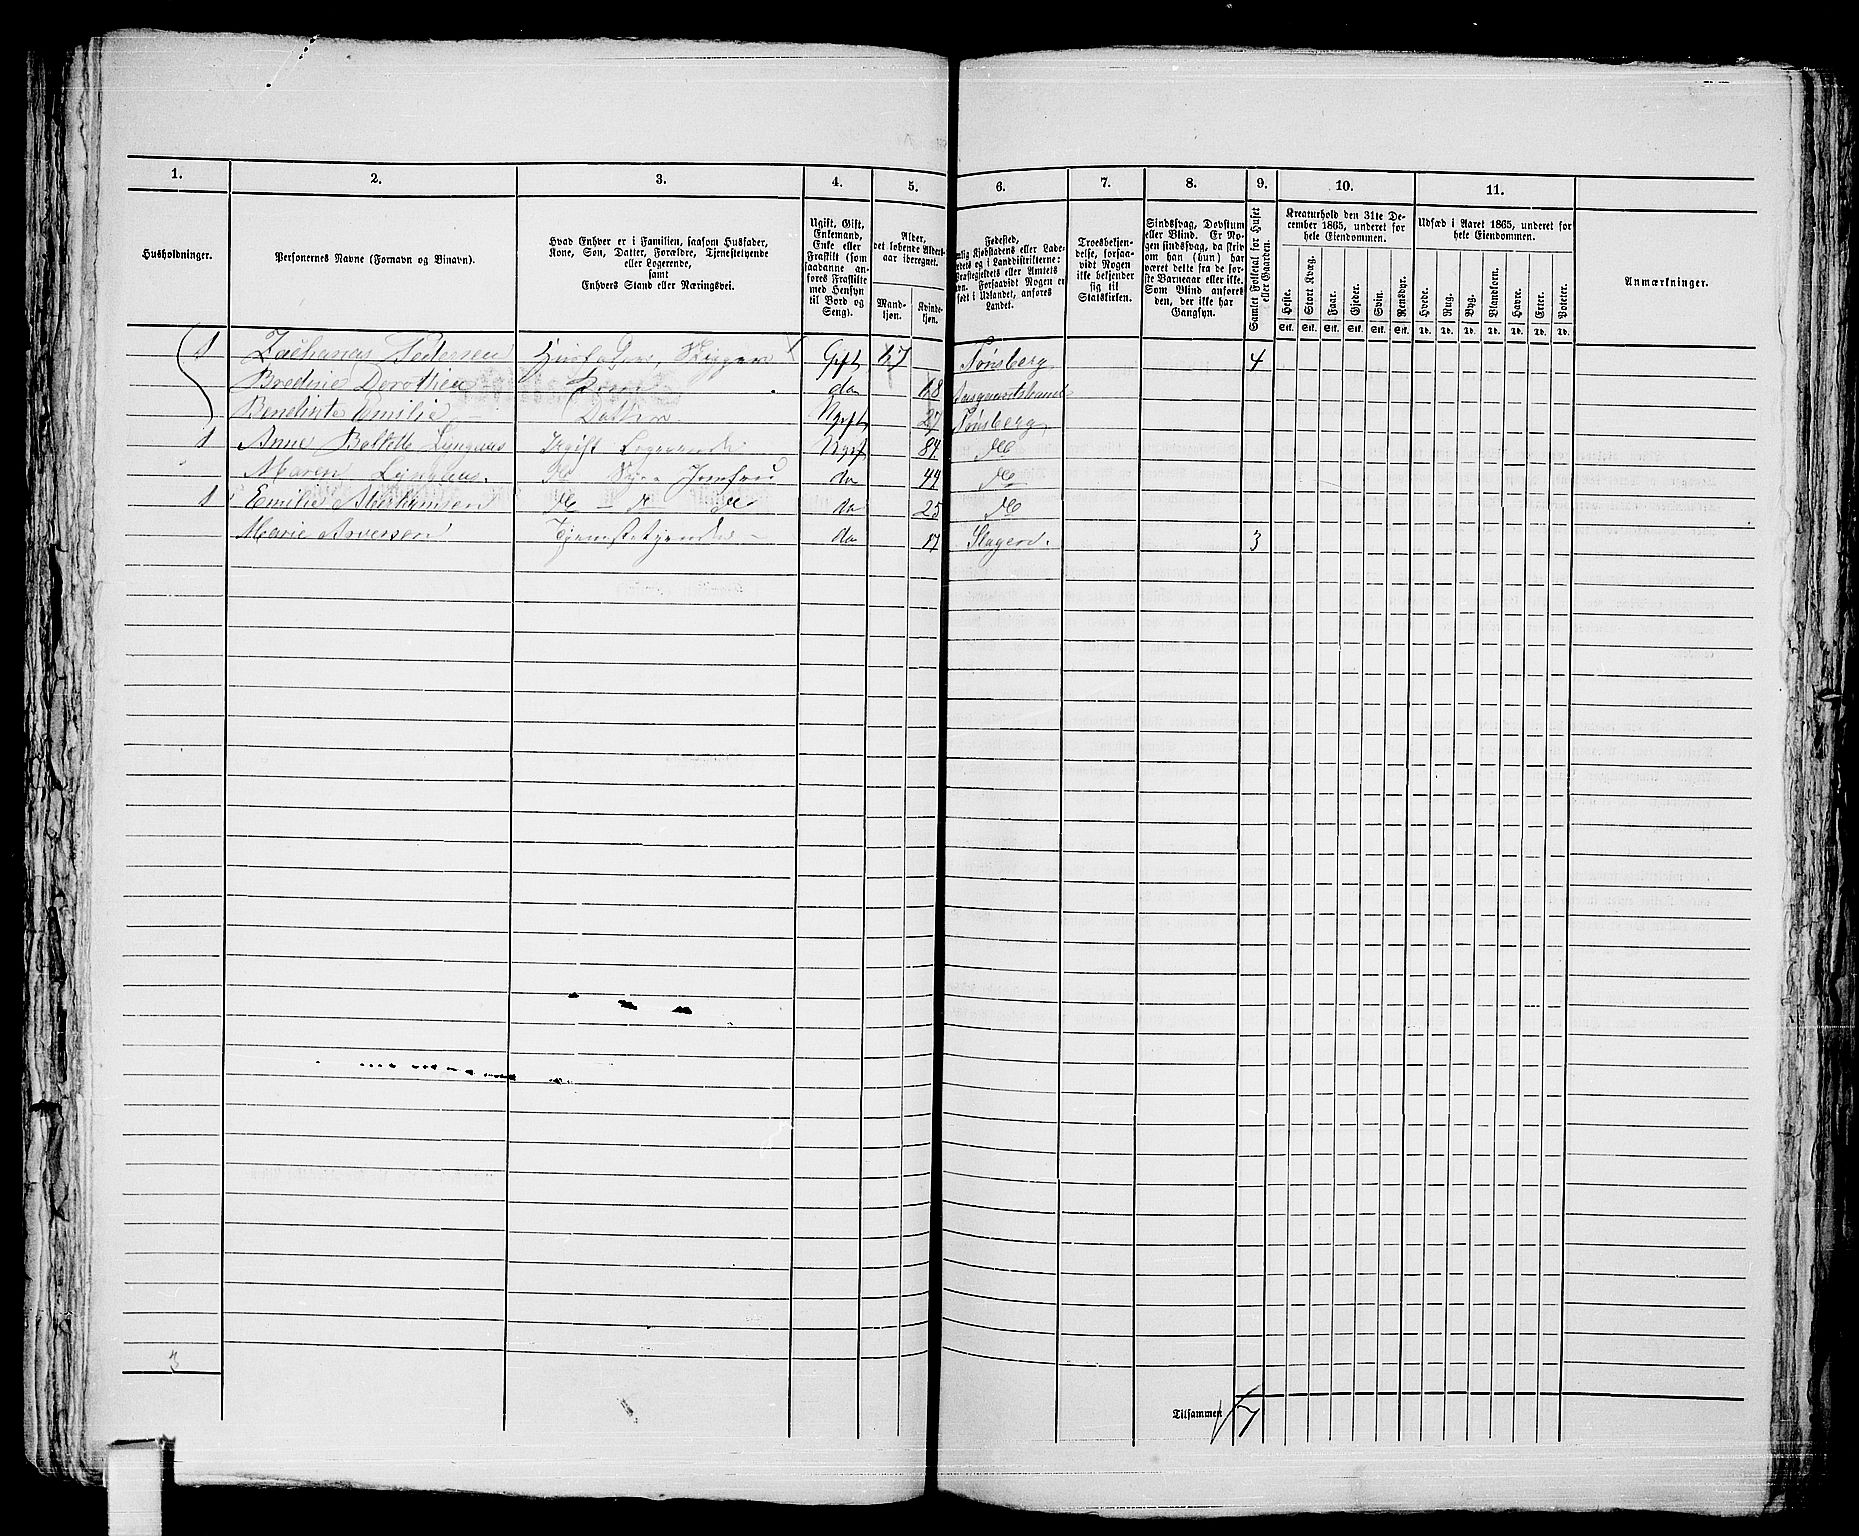 1. 2. 3. 4. 5. 6. 7. 8. 9. 10. 11.
Husholdninger.
Personernes Navne (Fornavn og Binavn).
Hvad Enhver er i Familien, saasom Husfader,
Kone, Søn, Datter, Forældre, Tjenestetyende
eller Logerende,
samt
Enhvers Stand eller Næringsvei.
Ugift, Gift,
Enkemand,
Enke eller
Fraskilt (som
saadanne an-
føres Fraskilte
med Hensyn
til Bord og
Seng).
Alder,
det løbende Alders-
aar iberegnet.
Mand-
kjøn.
Kvinde-
kjøn.
Fødested,
Kjøbstadens eller Lade-
og i Landdistrikterne:
Præstegjeldets eller Amtets
Forsaavidt Nogen er
født i Udlandet, anføres
Landet.
Troesbekjen-
delse, forsaa-
vidt Nogen
ikke bekjender
sig til
Statskirken.
Sindssvag, Døvstum
eller Blind. Er No-
gen sindssvag, da skriv
om han (hun) har
været dette fra de før-
ste Barneaar eller ikke.
Som Blind anføres
den, der ikke har
Gangsyn.
Samlet Folketal for Huset
eller Gaarden.
Kreaturhold den 31te De-
cember 1865, underet for
hele Eiendommen.
Heste. Stort Kvæg. Faar. Gjeder. Svin. Rensdyr.
Stk. Stk. Stk. Stk. Stk. Stk.
Udsæd i Aaret 1865, underet for
hele Eiendommen.
Hvede. Rug. Byg. Blandkorn. Havre. Erter. Poteter.
Td. Td. Td. Td. Td. Td. Td.
Anmærkninger.
1 Zacharias Pedersen Husfader, Gift 67 Tønsberg 4
Bredine Dorothea Kone do 68 Aasgaardstrand
Bendinte Emilie Datter Ugift 27 Tønsberg
1 Anne Bolette Lyngaas Ugift Logerende Ugift 84 do
Maren Lyngaas do Jomfru do 44 do
1 Emilie do do do do 25 do
Marie Iversen Tjenestetyende do 17 Slagen 3
3
Tilsammen 7